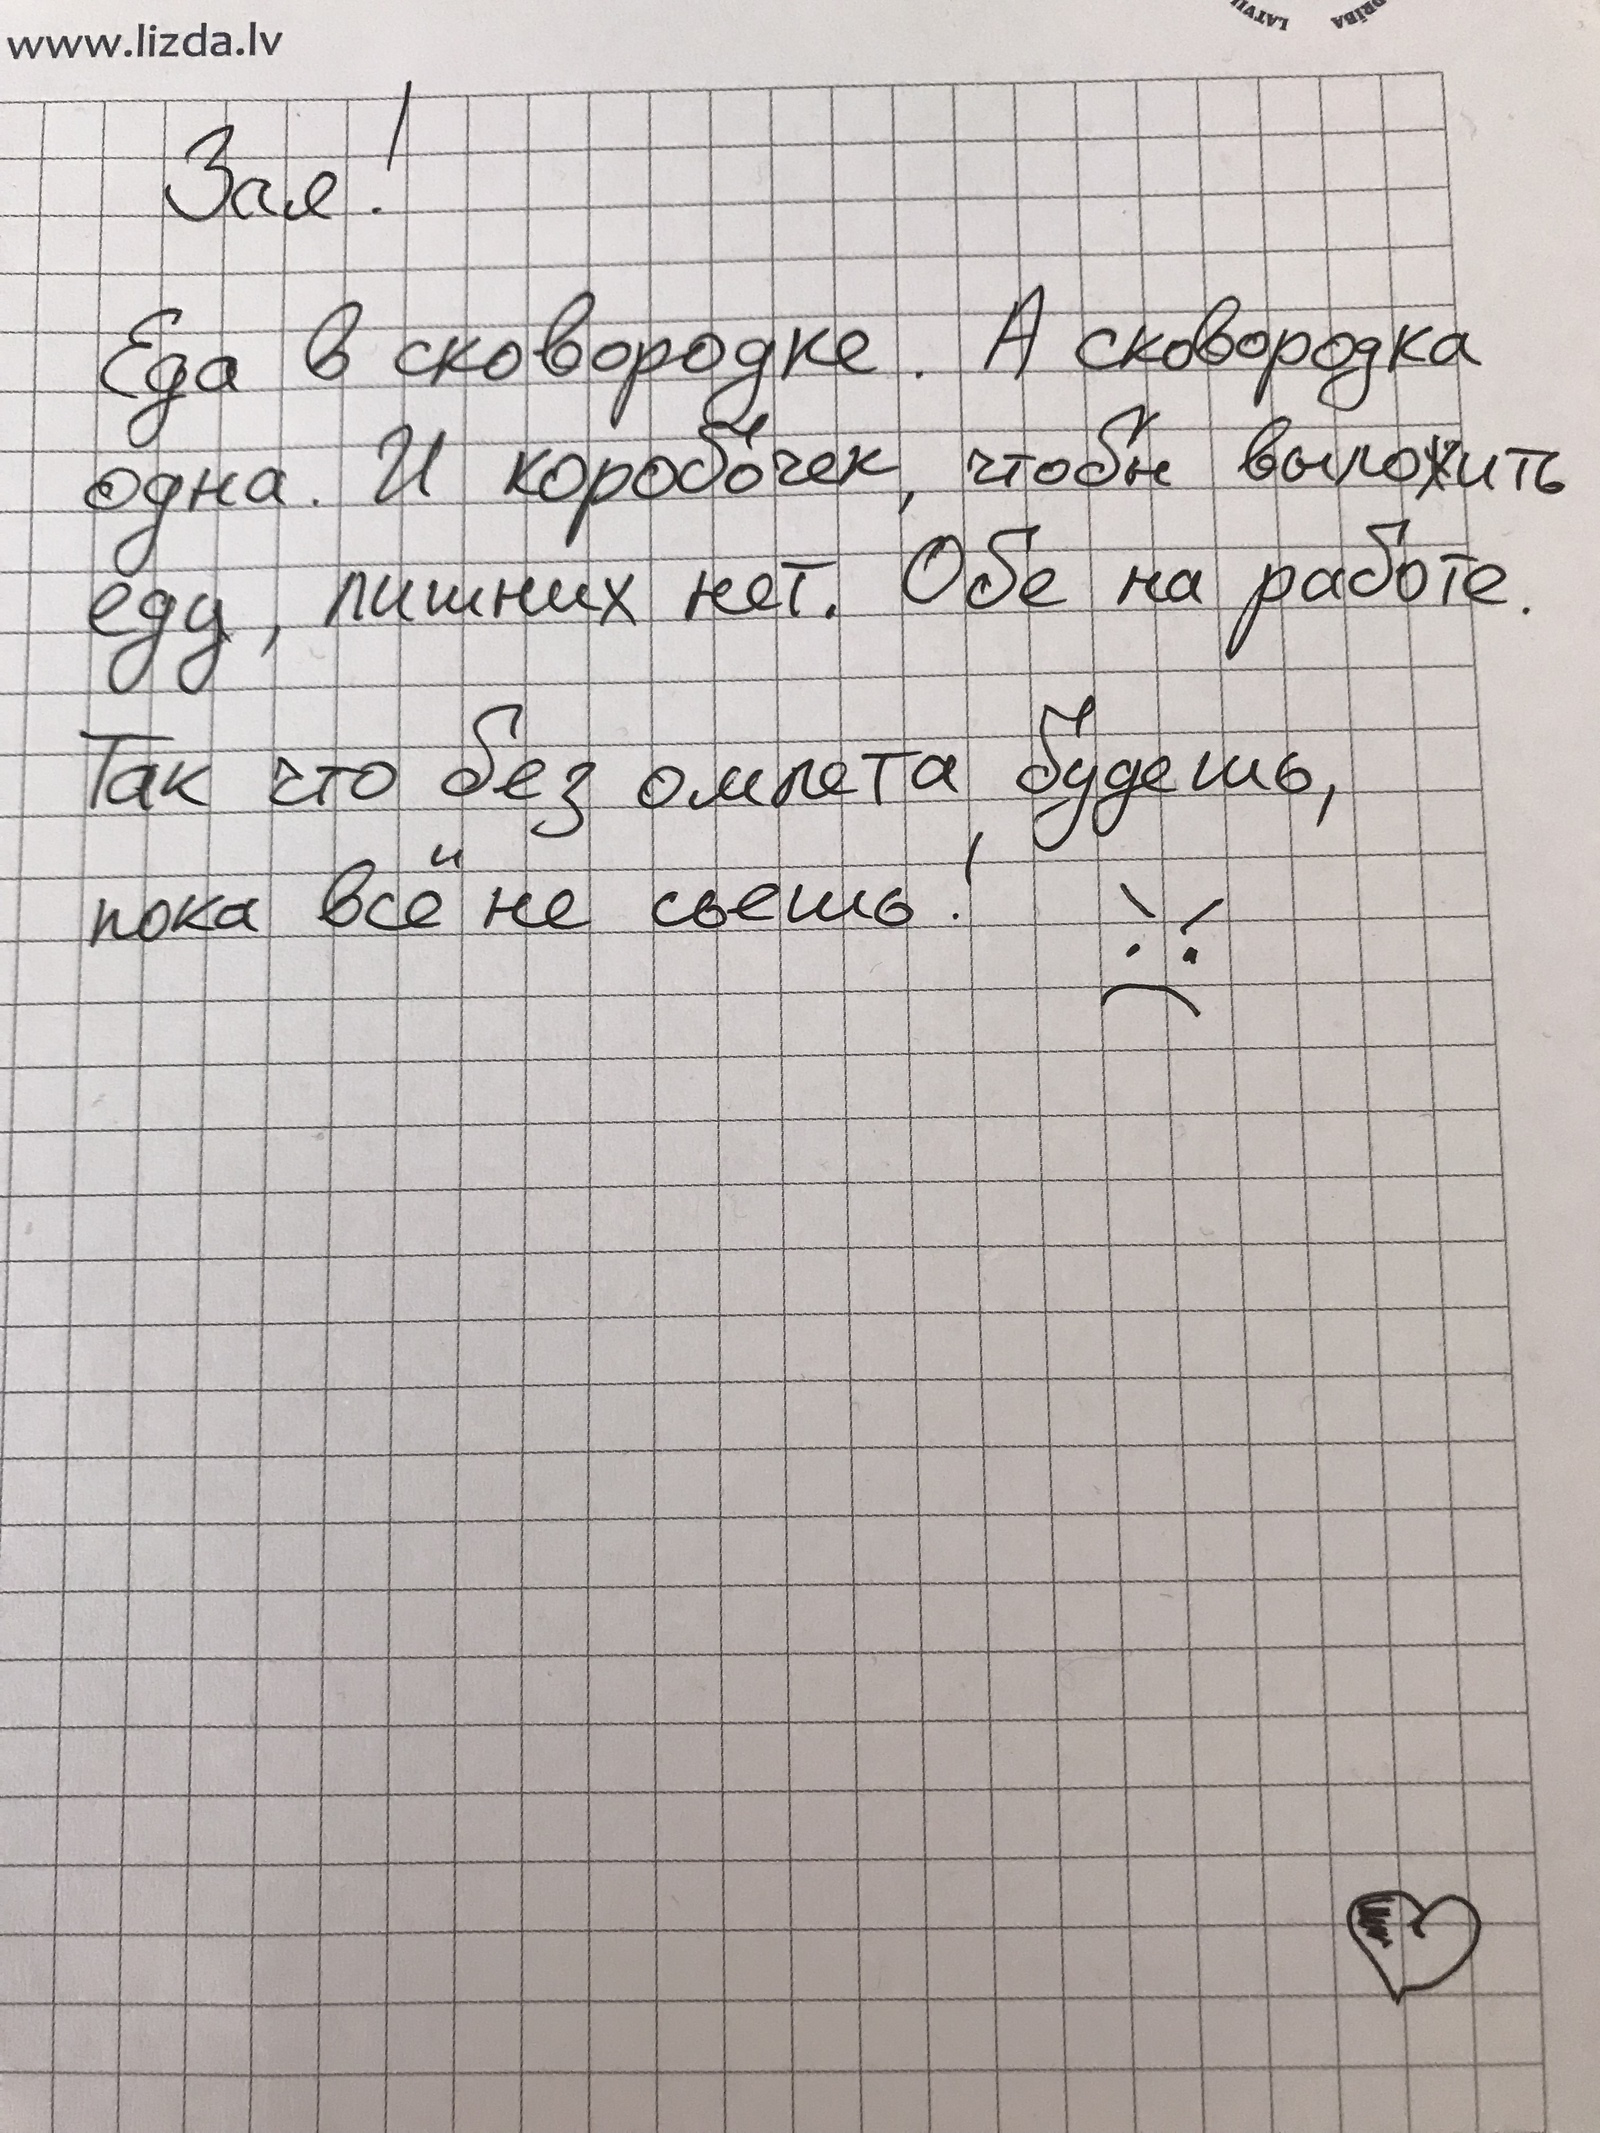 www.lizda.lv
LATVI DRĪBA
Зая!
Еда в сковородке. А сковородка
одна. И коробочек, чтобы выложить
еду, лишних нет. Обе на работе.
Так что без омлета будешь,
пока всё не сьешь!